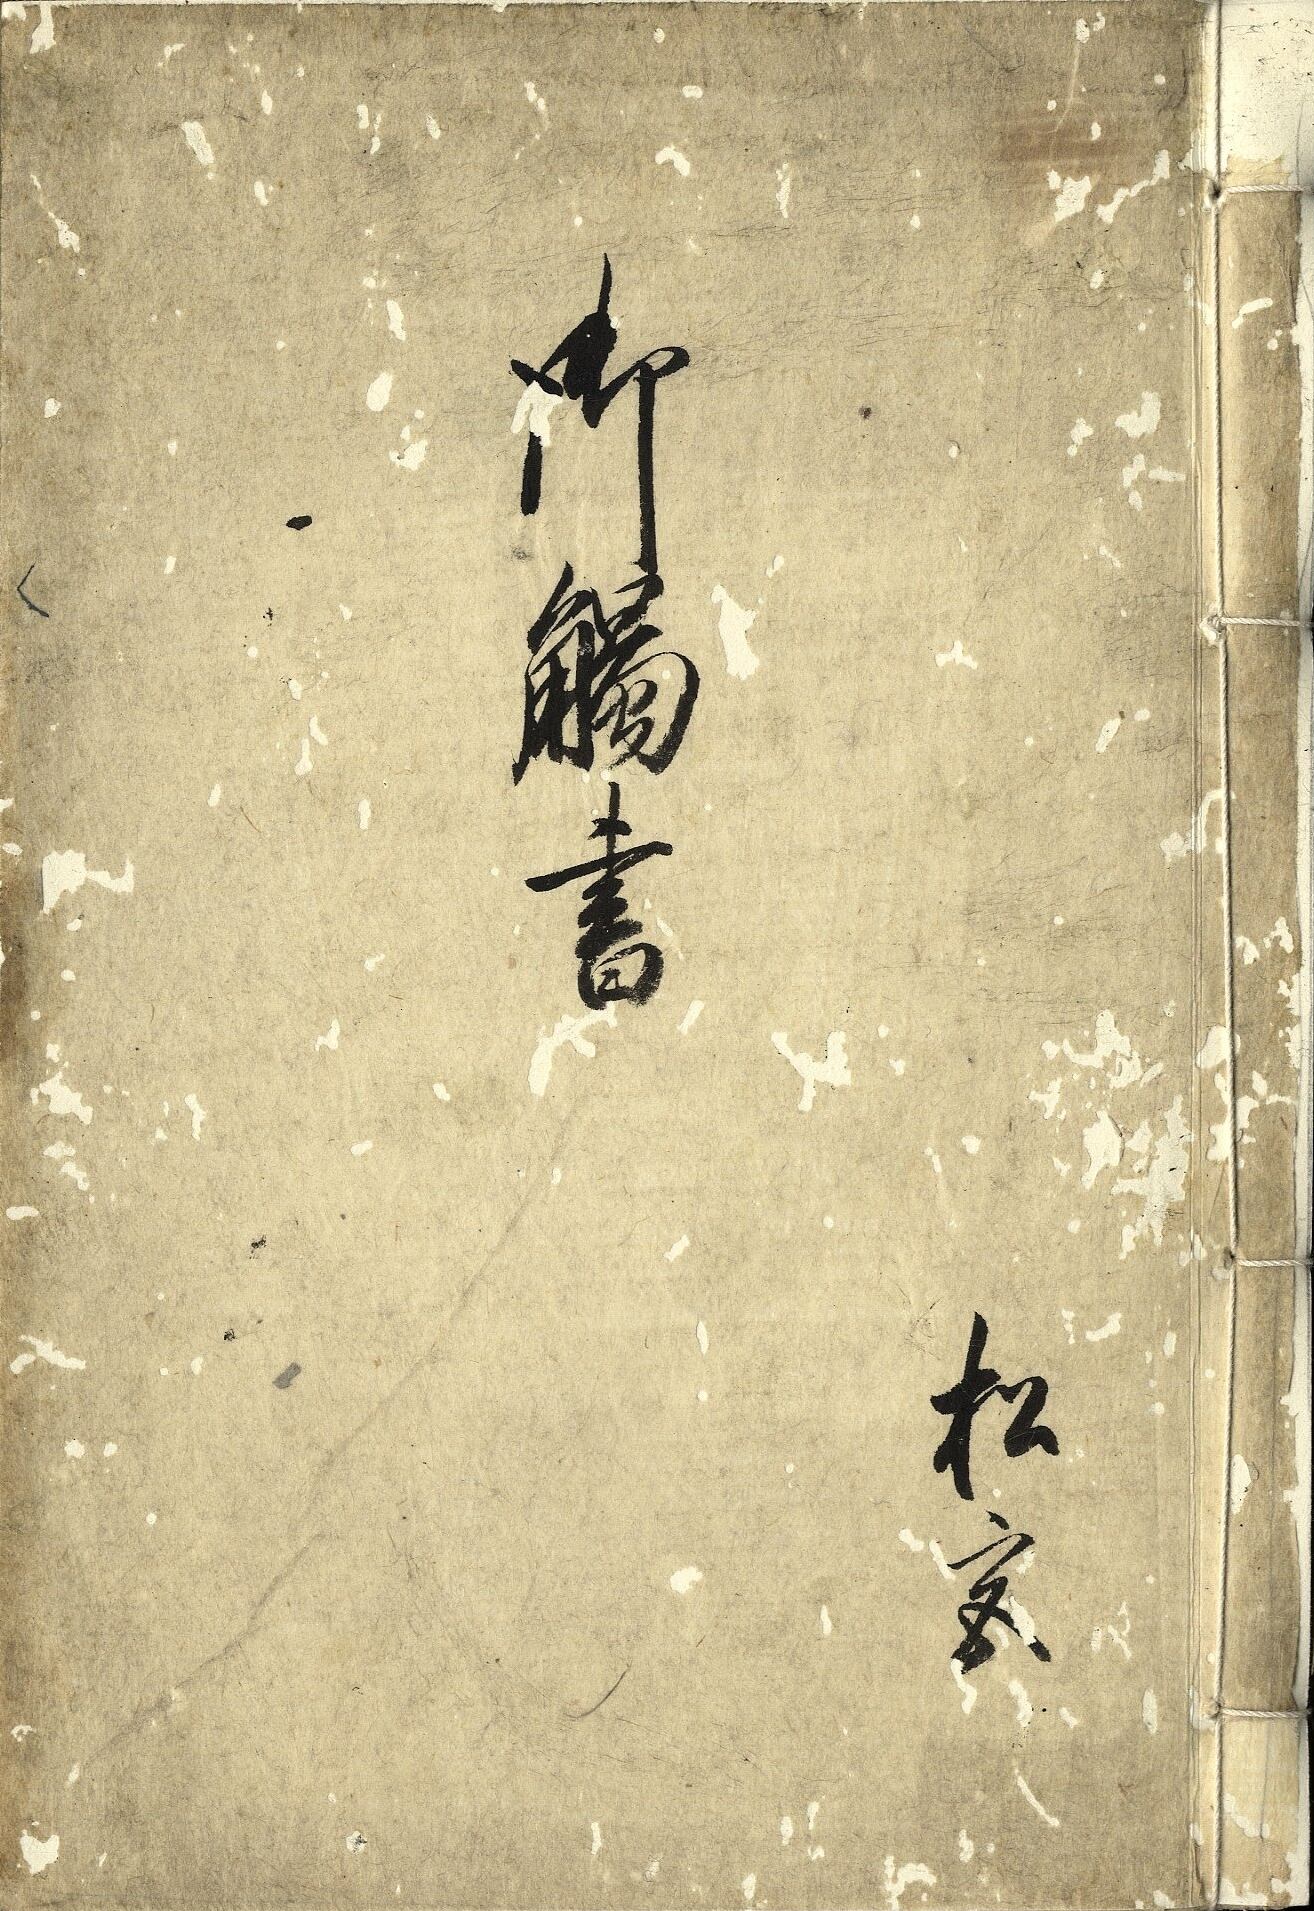 御觸書
松室